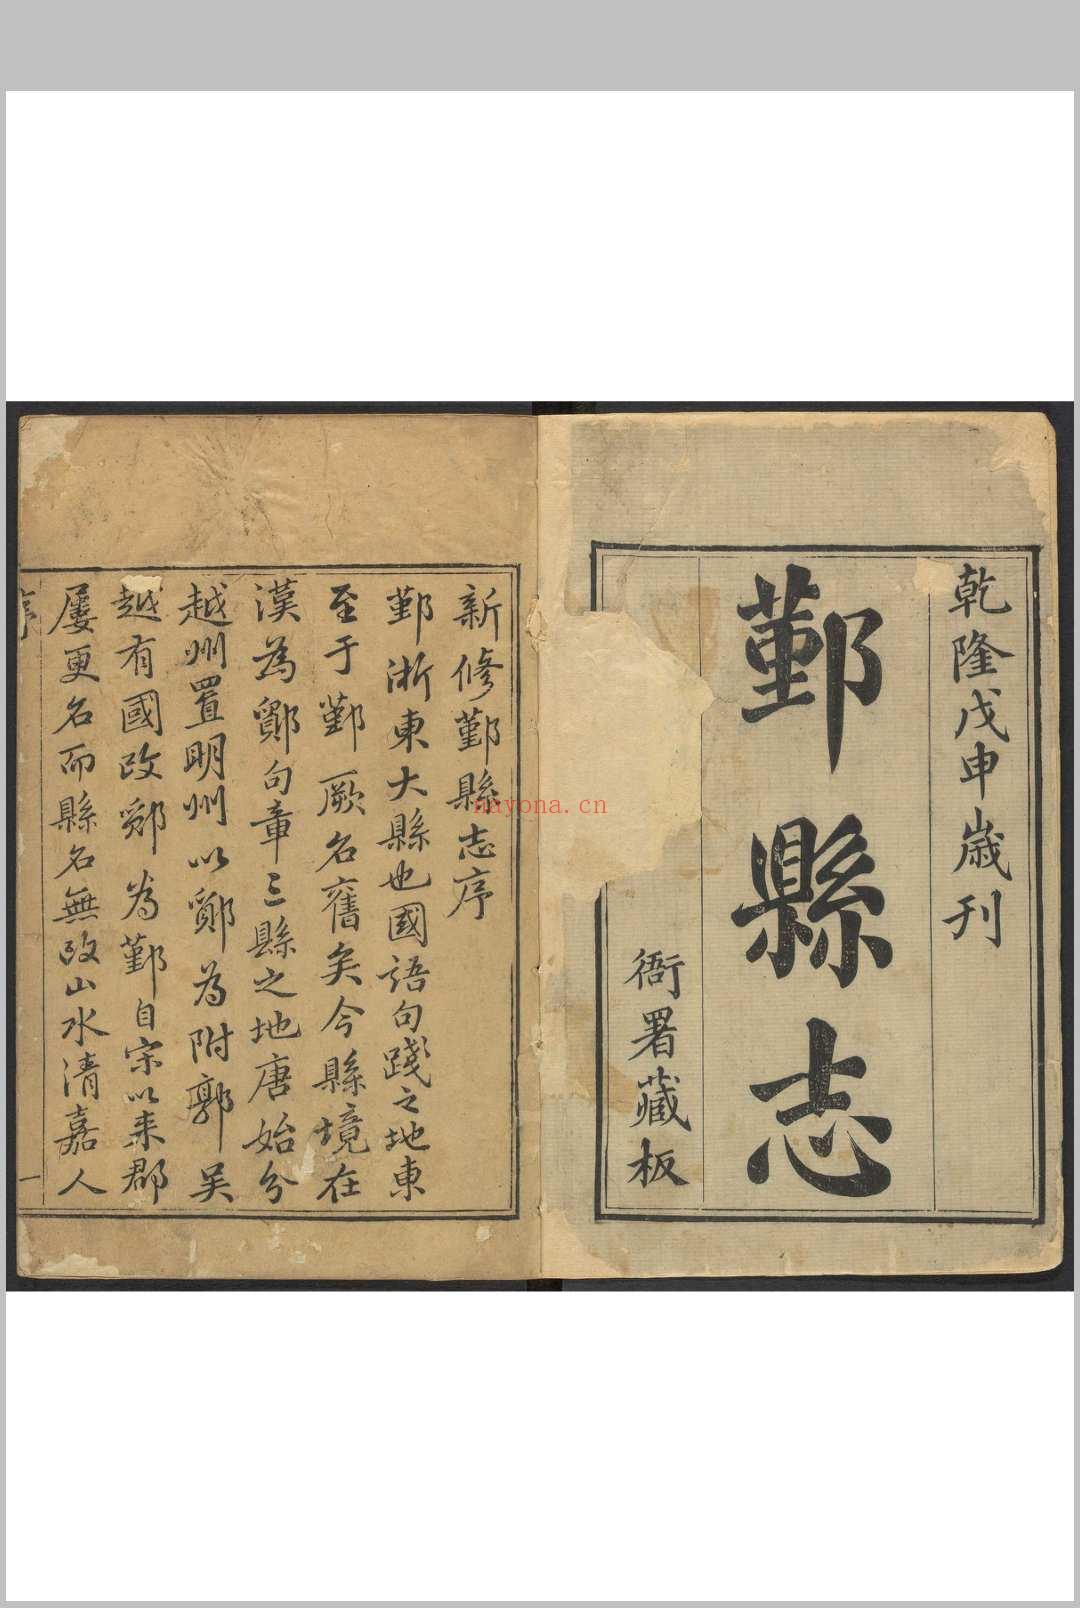 乾隆戊申歲刊
鄞縣志
衙署藏板
新修鄞縣志序
鄞浙東大縣也國語句踐之地東
至于鄞厥名舊矣今縣境在
漢為鄮句章二縣之地唐始分
越州置明州以鄮為附郭吳
越有國改鄮為鄞自宋以来郡
屢更名而縣名無改山水清嘉人
序
一
nayona.cn